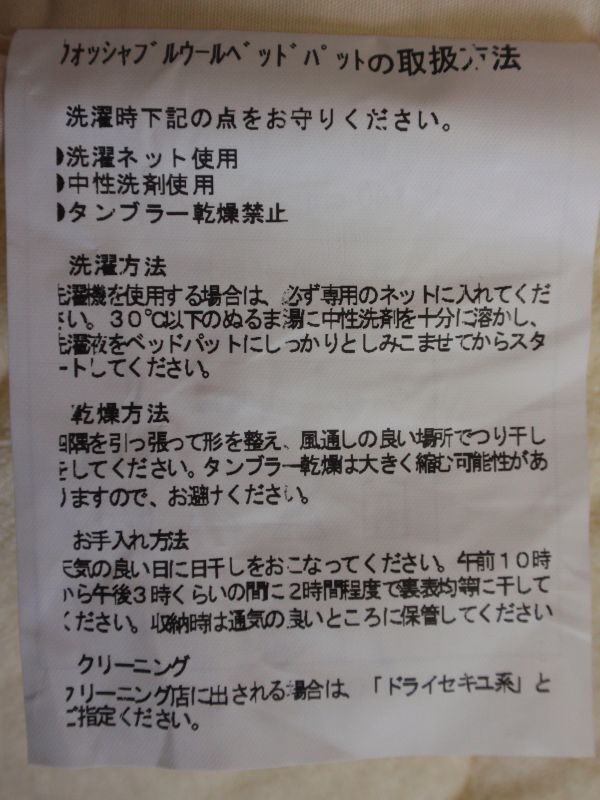 ウォッシャブルウールベッドパットの取扱方法
洗濯時下記の点をお守りください。
●洗濯ネット使用
●中性洗剤使用
●タンブラー乾燥禁止
洗濯方法
洗濯機を使用する場合は、必ず専用のネットに入れてくだ
さい。30℃以下のぬるま湯に中性洗剤を十分に溶かし、
洗濯液をベッドパットにしっかりとしみこませてからスタ
ートしてください。
乾燥方法
四隅を引っ張って形を整え、風通しの良い場所でつり干し
をしてください。タンブラー乾燥は大きく縮む可能性があ
りますので、お避けください。
お手入れ方法
天気の良い日に日干しをおこなってください。午前10時
から午後3時くらいの間に2時間程度で裏表均等に干して
ください。収納時は通気の良いところに保管してください
クリーニング
クリーニング店に出される場合は、「ドライセキユ系」と
ご指定ください。